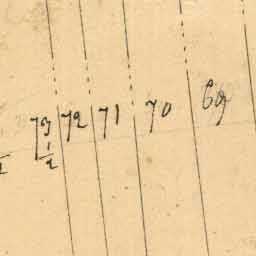 73 1/2 72 71 70 69